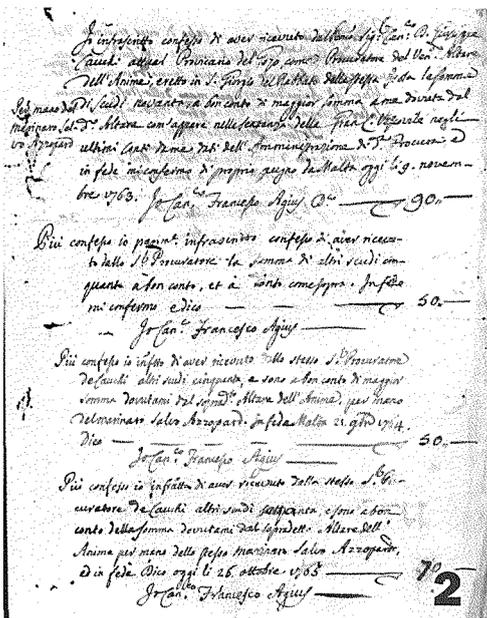 Io infrascritto confesso di aver ricevuto dal Sig. Can.co D. Giuseppe
Cauchi attual Provicario del Gozo come Procuratore del Ven. Altare
dell'Anime, eretto in S. Giorgio della stessa Isola la somma
di scudi novanta a bon conto di maggior somma a me dovuta dal
Per mano del
marinaro Sal-
vo Azzopard
d.o Altare com'appare nella sentenza della Gran C. Vescovile negli
ultimi conti da me dati dell'Amministrazione di Procura ed
in fede mi confermo di proprio pugno da Malta oggi li 9. novem-
bre 1763. Io Can.co Francesco Agius 90.
Più confesso io infrascritto confesso di aver ricevu-
to dallo S.r Procuratore la somma di altri scudi cin-
quanta a bon conto, et a conto come sopra. In fede
mi confermo e dico 50.
Io Can.co Francesco Agius
Più confesso io infrtto di aver ricevuto dallo stesso S.r Procuratore
de Cauchi altri scudi cinquanta, e sono a bon conto di maggior
somma dovutami dal Altare dell'Anime, per mano
del marinaro Salvo Azzopard. in fede Malta 21. 9bre 1764.
Dico 50.
Io Can.co Francesco Agius
Più confesso io infratto di aver ricevuto dallo stesso S.r Pro-
curatore de Cauchi altri scudi settanta e sono a bon
conto della somma dovutami dal sopradetto Altare dell'
Anime per mano dello stesso marinaro Salvo Azzopardi,
ed in fede Dico oggi li 26. ottobre 1765 70.
Io Can.co Francesco Agius
2